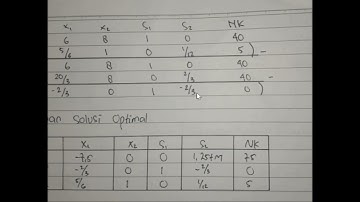 x₁ x₂ S₁ S₂ NK
6 8 1 0 40
5/6 1 0 1/12 5
6 8 1 0 40
20/3 8 0 2/3 40 -
-2/3 0 1 -2/3 0
an Solusi Optimal
X₁ X₂ S₁ S₂ NK
-7,5 0 0 1,25+M 75
-2/3 0 1 -2/3 0
5/6 1 0 1/12 5